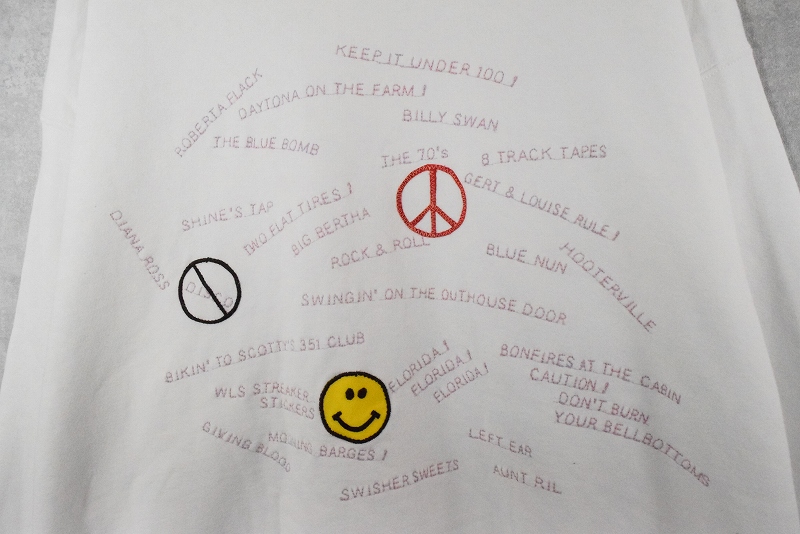 KEEP IT UNDER 100!
ROBERTA FLACK
DAYTONA ON THE FARM!
BILLY SWAN
THE BLUE BOMB
THE 70's
8 TRACK TAPES
GERT & LOUISE RULE!
SHINE'S TAP
TWO FLAT TIRES!
BIG BERTHA
DIANA ROSS
ROCK & ROLL
BLUE NUN
HOOTERVILLE
DISCO
SWINGIN' ON THE OUTHOUSE DOOR
BIKIN' TO SCOTTY'S 351 CLUB
FLORIDA!
FLORIDA!
FLORIDA!
BONFIRES AT THE CABIN
CAUTION!
DON'T BURN
YOUR BELLBOTTOMS
WLS STREAKER
STICKERS
GIVING BLOOD
BARGES!
LEFT EAR
SWISHER SWEETS
AUNT RIL